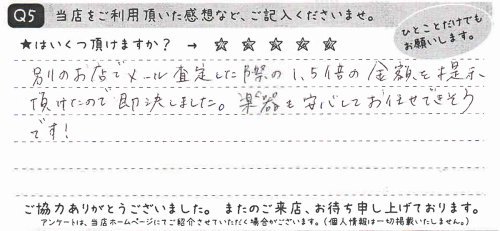 Q5 当店をご利用頂いた感想など、ご記入くださいませ。
ひとことだけでも
お願いします。
★はいくつ頂けますか? → ☆ ☆ ☆ ☆ ☆
別のお店でメール査定した際の1.5倍の金額を提示
頂けたので即決しました。楽器も安心してお任せできそう
です!
ご協力ありがとうございました。 またのご来店、お待ち申し上げております。
アンケートは、当店ホームページにてご紹介させていただく場合がございます。(個人情報は一切掲載いたしません。)